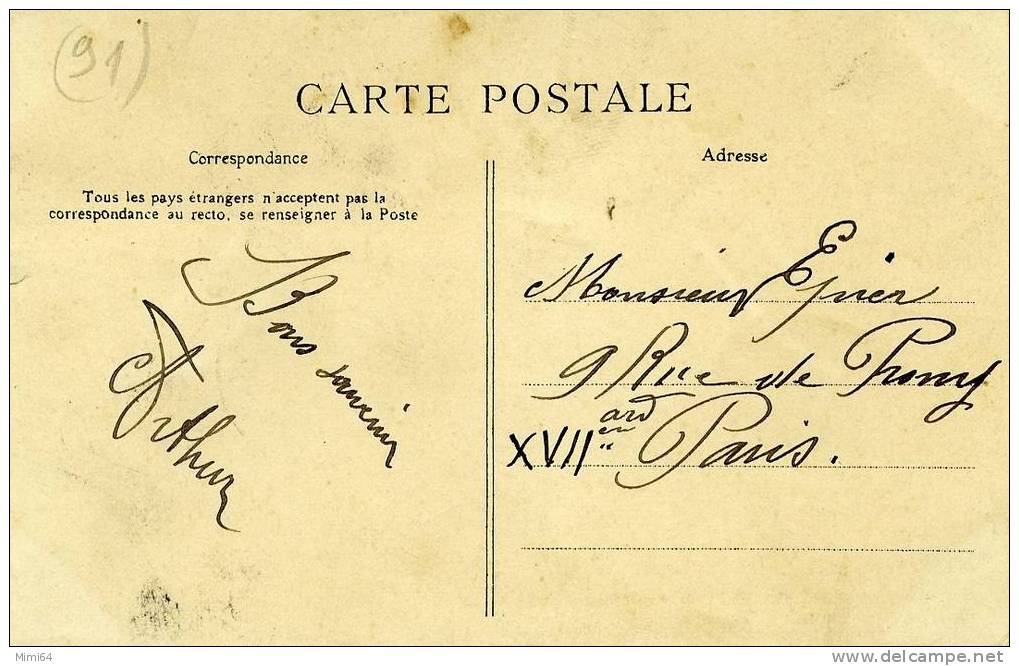 (91)
CARTE POSTALE
Correspondance
Tous les pays étrangers n'acceptent pas la
correspondance au recto, se renseigner à la Poste
Bons souvenir
Arthur
Adresse
Monsieur
9 Rue de Prony
XVII ard Paris.
Mimi64
delcampe.net